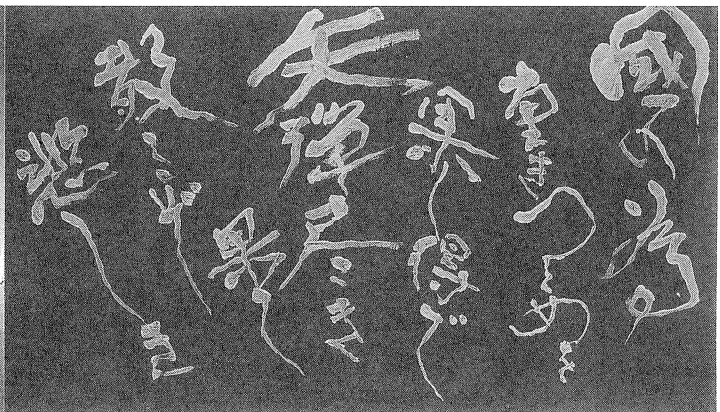 國の為
重きつとめを
果し得で
矢弾尽き
果て
散るぞ
悲しき